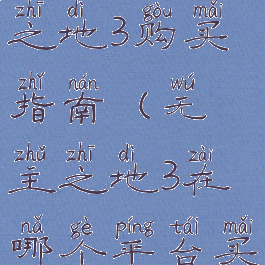 zhī dì gòu mǎi
之地3购买
zhǐ nán wú
指南(无
zhǔ zhī dì zài
主之地3在
nǎ gè píng tái mǎi
哪个平台买